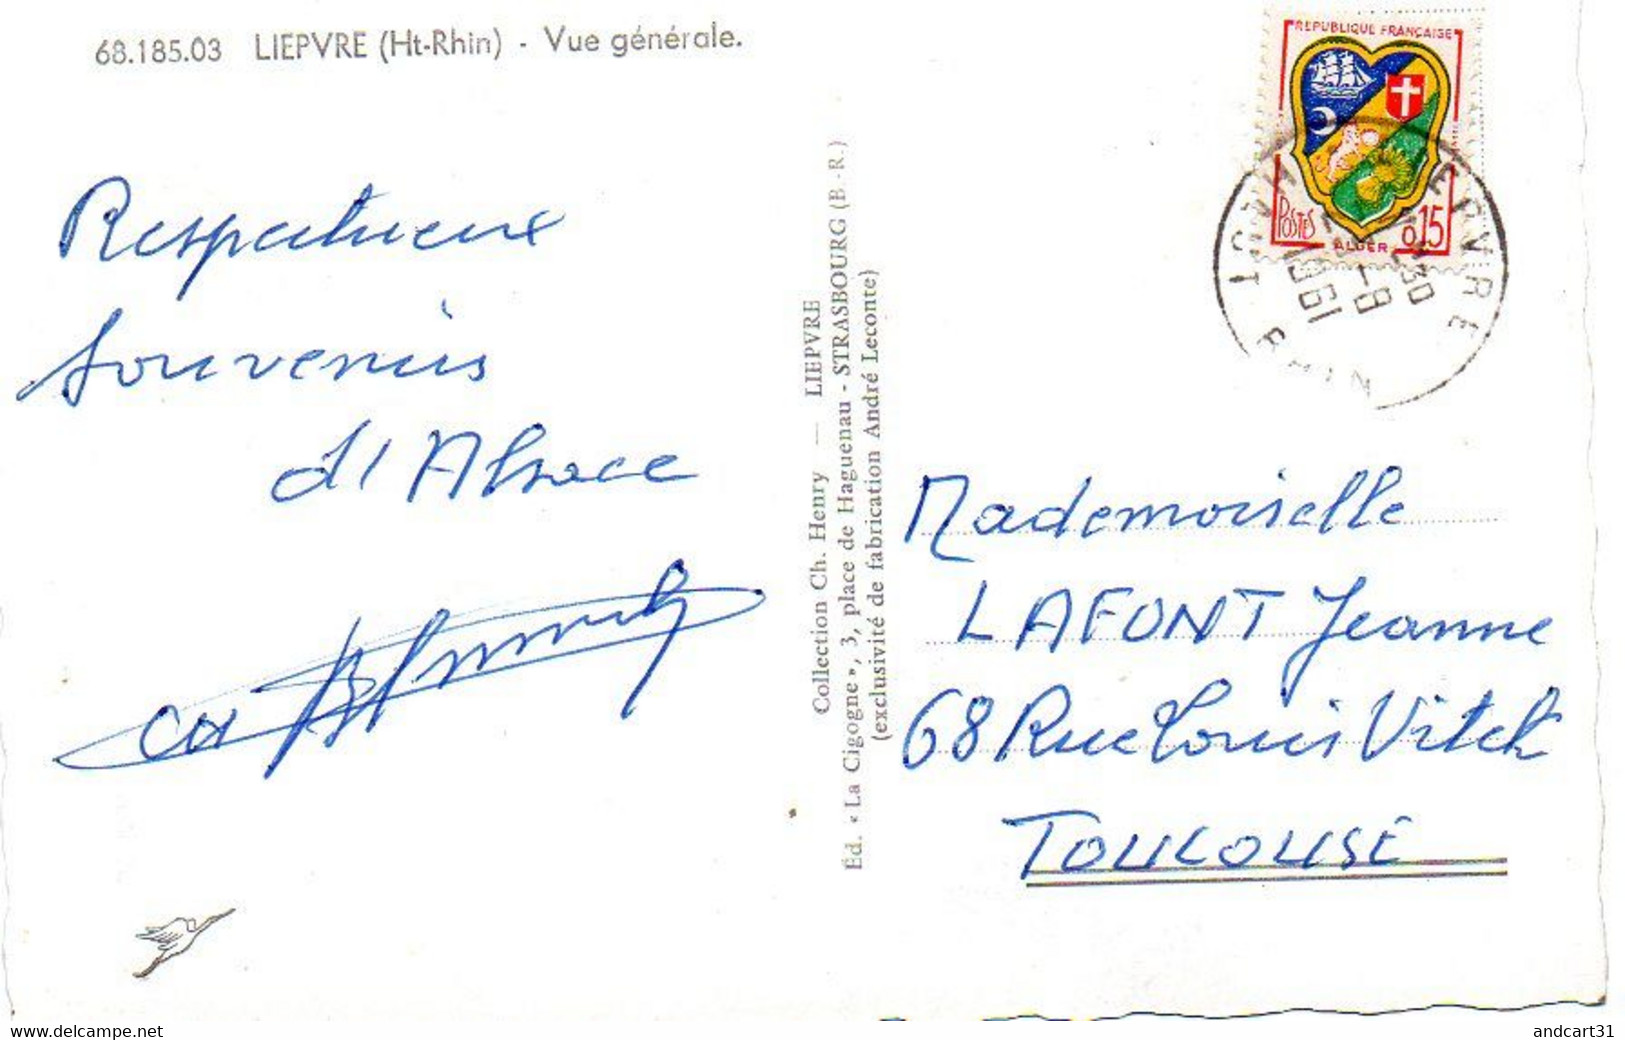 68.185.03 LIEPVRE (Ht-Rhin) - Vue générale.
Respectueux
souvenirs
d'Alsace
Collection Ch. Henry — LIEPVRE
Éd. « La Cigogne », 3, place de Haguenau - STRASBOURG (B.-R.)
(exclusivité de fabrication André Leconte)
REPUBLIQUE FRANÇAISE
POSTES
ALGER
0,15
LIEPVRE
HAUT RHIN
1961
Mademoiselle
LAFONT Jeanne
68 Rue Louis Vitet
TOULOUSE
andcart31